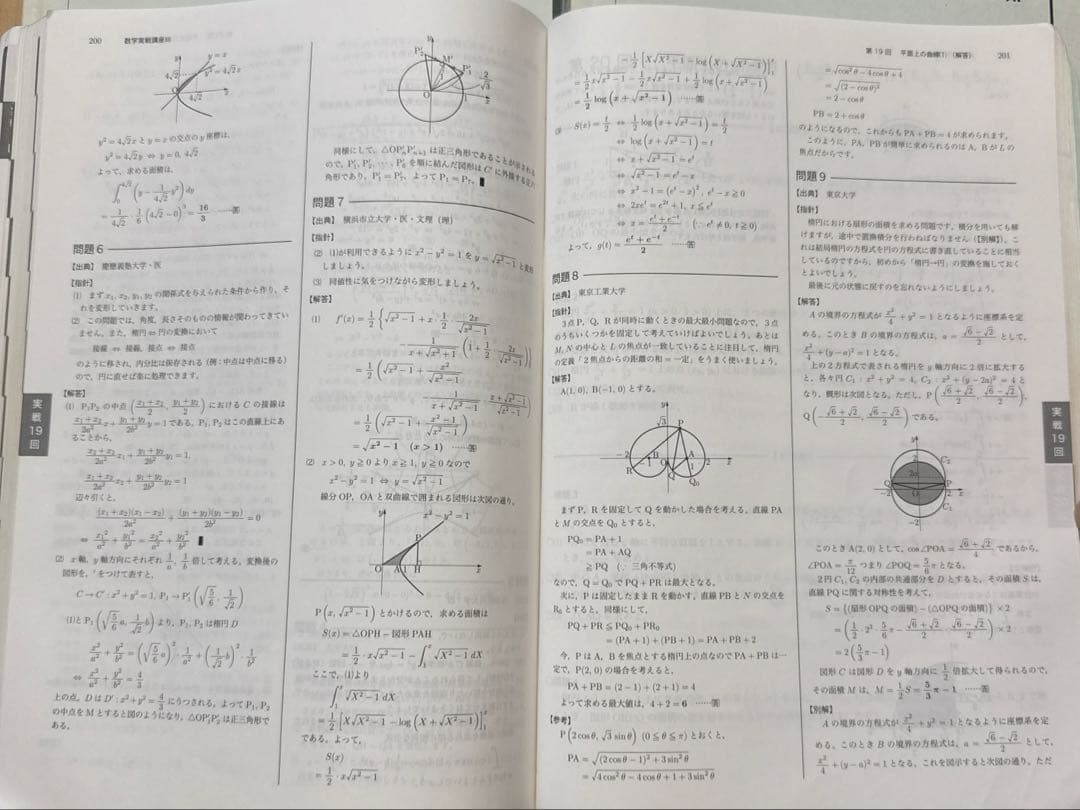 200 数学実戦講座III
y=x
y²=4√2x
4√2
O
4√2
x
y²=4√2xとy=xの交点のy座標は，
y²=4√2y ⇔ y=0, 4√2
よって，求める面積は，
∫₀^{4√2}(y−1/(4√2) y²)dy
=1/(4√2)・1/6(4√2−0)³=16/3 ……答
問題6
【出典】 慶應義塾大学・医
【指針】
(1) まずx₁, x₂, y₁, y₂の関係式を与えられた条件から作り，それを変形していきます。
(2) この問題では，角度，長さそのものの情報が関わってきていません。また，楕円⇔円の変換において
接線 ⇔ 接線，接点 ⇔ 接点
のように移され，内分比は保存される（例：中点は中点に移る）ので，円に直せば楽に処理できます。
【解答】
(1) P₁P₂の中点((x₁+x₂)/2, (y₁+y₂)/2)におけるCの接線は
(x₁+x₂)/2a² x+(y₁+y₂)/2b² y=1である。P₁, P₂はこの直線上にあることから，
(x₁+x₂)/2a² x₁+(y₁+y₂)/2b² y₁=1,
(x₁+x₂)/2a² x₂+(y₁+y₂)/2b² y₂=1
辺々引くと，
(x₁+x₂)(x₁−x₂)/2a²+(y₁+y₂)(y₁−y₂)/2b²=0
⇔ x₁²/a²+y₁²/b²=x₂²/a²+y₂²/b² ∎
(2) x軸，y軸方向にそれぞれ1/a, 1/b倍して考える。変換後の図形を，′をつけて表すと，
C→C′：x²+y²=1, P₁→P₁′(√(5/6), 1/√2)
(1)とP₁(√(5/6)a, 1/√2 b)より，P₁, P₂は楕円D
x²/a²+y²/b²=(√(5/6)a)²・1/a²+(1/√2 b)²・1/b²
⇔ x²/a²+y²/b²=4/3
上の点。DはD′：x²+y²=4/3にうつされる。よってP₁, P₂の中点をMとすると図のようになり，△OP₁′P₂′は正三角形である。
P₂′
M′
P₁′
2/√3
O
1
x
同様にして，△OPₙ′P′ₙ₊₁は正三角形であることが示されるので，P₁′, P₂′, …, を順に結んだ図形はC′に外接する正六角形であり，P₁′=P₇′，よってP₁=P₇。∎
問題7
【出典】 横浜市立大学・医・文理（理）
【指針】
(2) (1)が利用できるようにx²−y²=1をy=√(x²−1)と変形しましょう。
(3) 同値性に気をつけながら変形しましょう。
【解答】
(1) f′(x)=1/2{√(x²−1)+x・1/2・2x/√(x²−1)
=1/2(√(x²−1)+x²/√(x²−1)
=1/2(√(x²−1)+(x²−1)/√(x²−1))
=√(x²−1) (x>1) ……答
(2) x>0, y≧0よりx≧1, y≧0なので
x²−y²=1 ⇔ y=√(x²−1)
線分OP，OAと双曲線で囲まれる図形は次図の通り。
y
x²−y²=1
P
O A 1 H x
P(x, √(x²−1))とかけるので，求める面積は
S(x)=△OPH−図形PAH
=1/2・x√(x²−1)−∫₁ˣ√(X²−1) dX
ここで，(1)より
∫₁ˣ√(X²−1) dX
=1/2[X√(X²−1)−log(X+√(X²−1)]₁ˣ
である。よって，
S(x)
=1/2・x√(x²−1)
第19回 平面上の曲線(1)（解答） 201
−1/2[X√(X²−1)−log(X+√(X²−1)]₁ˣ
=1/2x√(x²−1)−1/2x√(x²−1)+1/2log(x+√(x²−1))
=1/2log(x+√(x²−1)) ……答
(3) S(x)=t/2 ⇔ 1/2log(x+√(x²−1))=t/2
⇔ log(x+√(x²−1))=t
⇔ x+√(x²−1)=eᵗ
⇔ √(x²−1)=eᵗ−x
⇔ x²−1=(eᵗ−x)², eᵗ−x≧0
⇔ 2xeᵗ=e²ᵗ+1, x≦eᵗ
⇔ x=(eᵗ+e⁻ᵗ)/2 (∵eᵗ≠0, t≧0)
よって，g(t)=(eᵗ+e⁻ᵗ)/2 ……答
問題8
【出典】 東京工業大学
【指針】
3点P，Q，Rが同時に動くときの最大最小問題なので，3点のうちいくつかを固定して考えていけばよいでしょう。あとはM，Nの中心とLの焦点が一致していることに注目して，楕円の定義「2焦点からの距離の和＝一定」をうまく使いましょう。
【解答】
A(1, 0)，B(−1, 0)とする。
y
√3 P
−2 B A 2 x
R −1 O 1
Q Q₀
まずP，Rを固定してQを動かした場合を考える。直線PAとMの交点をQ₀とすると，
PQ₀=PA+1
=PA+AQ
≧PQ (∵ 三角不等式)
なので，Q=Q₀でPQ+PRは最大となる。
次に，Pは固定したままRを動かす。直線PBとNの交点をR₀とすると，同様にして，
PQ+PR≦PQ₀+PR₀
=(PA+1)+(PB+1)=PA+PB+2
今，PはA，Bを焦点とする楕円上の点なのでPA+PBは一定で，P(2, 0)の場合を考えると，
PA+PB=(2−1)+(2+1)=4
よって求める最大値は，4+2=6 ……答
【参考】
P(2cosθ, √3 sinθ) (0≦θ≦π)とおくと，
PA=√((2cosθ−1)²+3sin²θ)
=√(4cos²θ−4cosθ+1+3sin²θ)
=√(cos²θ−4cosθ+4)
=√((2−cosθ)²)
=2−cosθ
PB=2+cosθ
のようになるので，これからもPA+PB=4が求められます。
このように，PA，PBが簡単に求められるのはA，BがLの焦点だからです。
問題9
【出典】 東京大学
【指針】
楕円における扇形の面積を求める問題です。積分を用いても解けますが，途中で置換積分を行わねばなりません（【別解】）。これは結局楕円の方程式を円の方程式に書き直していることに相当しているのですから，初めから「楕円→円」の変換を施しておくとよいでしょう。
最後に元の状態に戻すのを忘れないようにしましょう。
【解答】
Aの境界の方程式がx²/4+y²=1となるように座標系を定める。このときBの境界の方程式は，a=(√6−√2)/2として，
x²/4+(y−a)²=1となる。
上の2方程式で表される楕円をy軸方向に2倍に拡大すると，各々円C₁：x²+y²=4, C₂：x²+(y−2a)²=4となり，概形は次図となる。ただし，P((√6+√2)/2, (√6−√2)/2),
Q(−(√6+√2)/2, (√6−√2)/2)である。
y
C₂
2a
Q P
−2 O 2 x
C₁
−2
このときA(2, 0)として，cos∠POA=(√6+√2)/4であるから，
∠POA=π/12 つまり∠POQ=5/6πとなる。
2円C₁, C₂の内部の共通部分をDとすると，その面積Sは，直線PQに関する対称性を考えて，
S={(扇形OPQの面積)−(△OPQの面積)}×2
=(1/2・2²・5/6π−(√6+√2)/2・(√6−√2)/2)×2
=2(5/3π−1)
図形Cは図形Dをy軸方向に1/2倍拡大して得られるので，その面積Mは，M=1/2S=5/3π−1 ……答
【別解】
Aの境界の方程式がx²/4+y²=1となるように座標系を定める。このときBの境界の方程式は，a=(√6−√2)/2として，
x²/4+(y−a)²=1となる。これを図示すると次図の通り。ただ
実戦19回
実戦19回